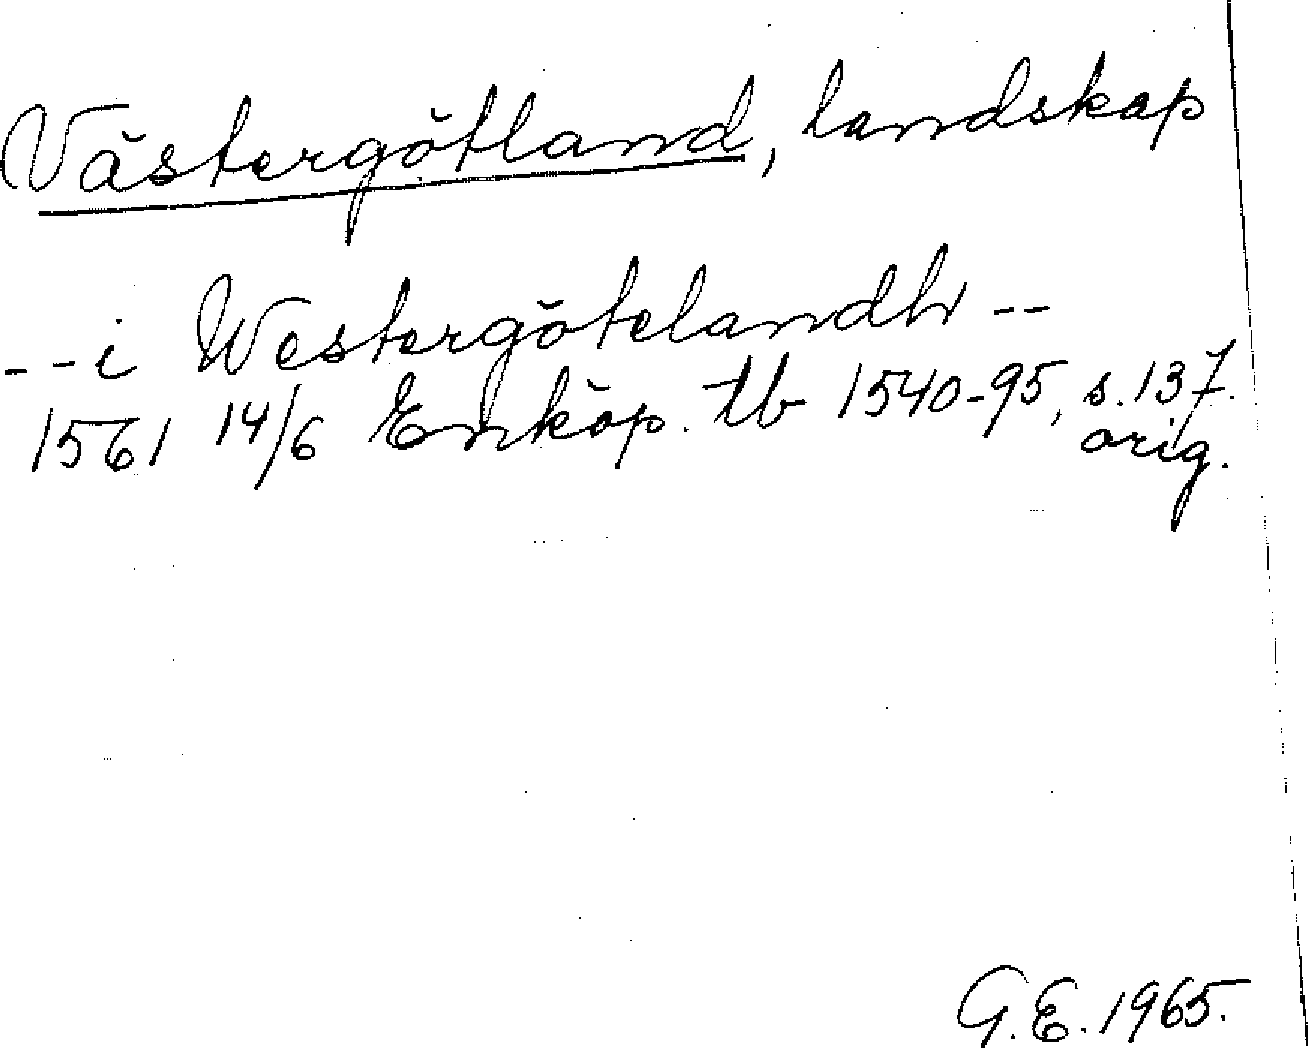 Västergötland, landskap
-- i Westergötelandh --
1561 14/6 Enköp. tb 1540-95, s. 137.
orig.
G.E. 1965.